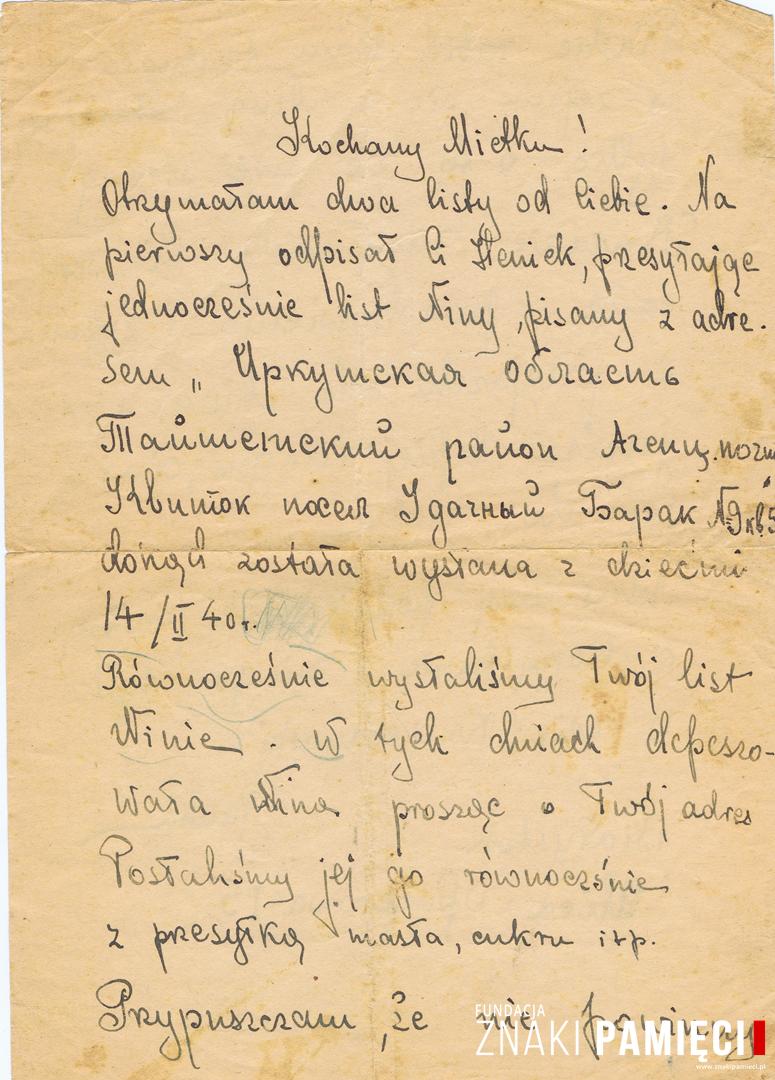 Kochany Mietku!
Otrzymałam dwa listy od Ciebie. Na
pierwszy odpisał Ci Heniek, przesyłając
jednocześnie list Niny, pisany z adre-
sem „ Иркутская область
Тайшетский район Агенц. почт
Квиток посел Удачный Барак №9 кв5
dokąd została wysłana z dziećmi
14/II 40r.
Równocześnie wysłaliśmy Twój list
Ninie. W tych dniach depeszo-
wała Nina prosząc o Twój adres
Posłaliśmy jej go równocześnie
z przesyłką masła, cukru itp.
Przypuszczam, że nie powinny
FUNDACJA
ZNAKI PAMIĘCI
www.znakipamieci.pl